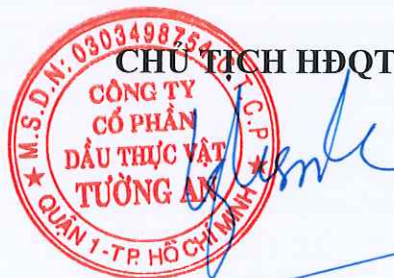 CHỦ TỊCH HĐQT
M.S.D.N: 0303498754 - C.T.C.P
CÔNG TY
CỔ PHẦN
DẦU THỰC VẬT
TƯỜNG AN
QUẬN 1 - TP. HỒ CHÍ MINH